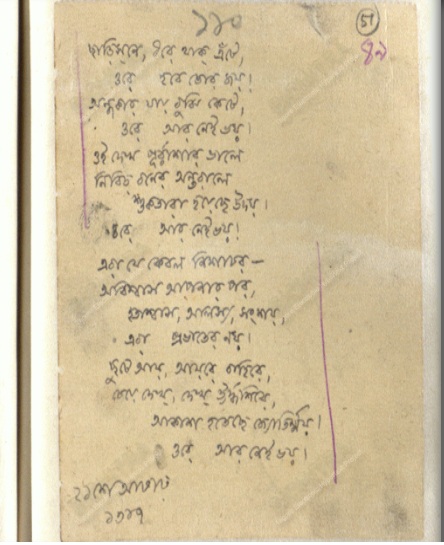 ১১০
51
৪৯
ছাড়িসনে, ধরে থাক এঁটে,
ওরে হবে তোর জয়।
অন্ধকার যায় বুঝি কেটে,
ওরে আর নেই ভয়।
ওই দেখ পূর্ব্বাশার ভালে
নিবিড় বনের অন্তরালে
শুকতারা হয়েছে উদয়।
ওরে আর নেই ভয়।
এরা যে কেবল নিশাচর—
অবিশ্বাস আপনার পর,
হতাশ্বাস, আলস্য, সংশয়,
এরা প্রভাতের নয়।
ছুটে আয়, আয়রে বাহিরে,
চেয়ে দেখ্, দেখ্ ঊর্দ্ধশিরে,
আকাশ হতেছে জ্যোতির্ম্ময়।
ওরে আর নেই ভয়।
২১শে আষাঢ়
১৩১৭